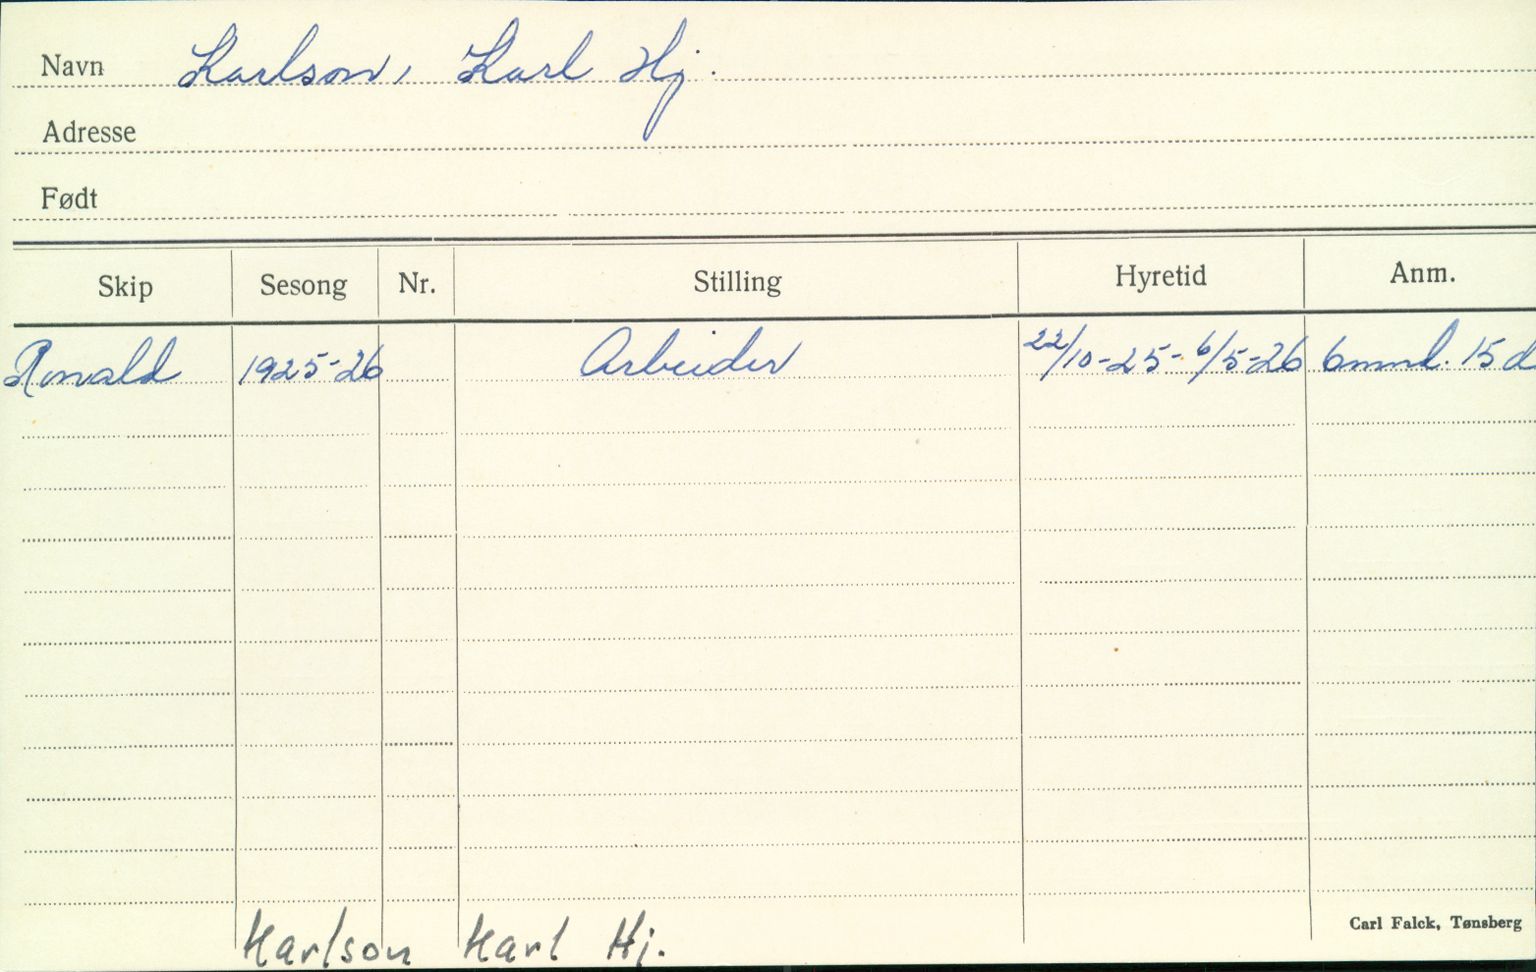 Navn Karlson, Karl Hj.
Adresse
Født
Skip Sesong Nr. Stilling Hyretid Anm.
Ronald 1925-26 Arbeider 22/10-25- 6/5-26 6 mnd. 15 d
Carl Falck, Tønsberg
Karlson Karl Hj.